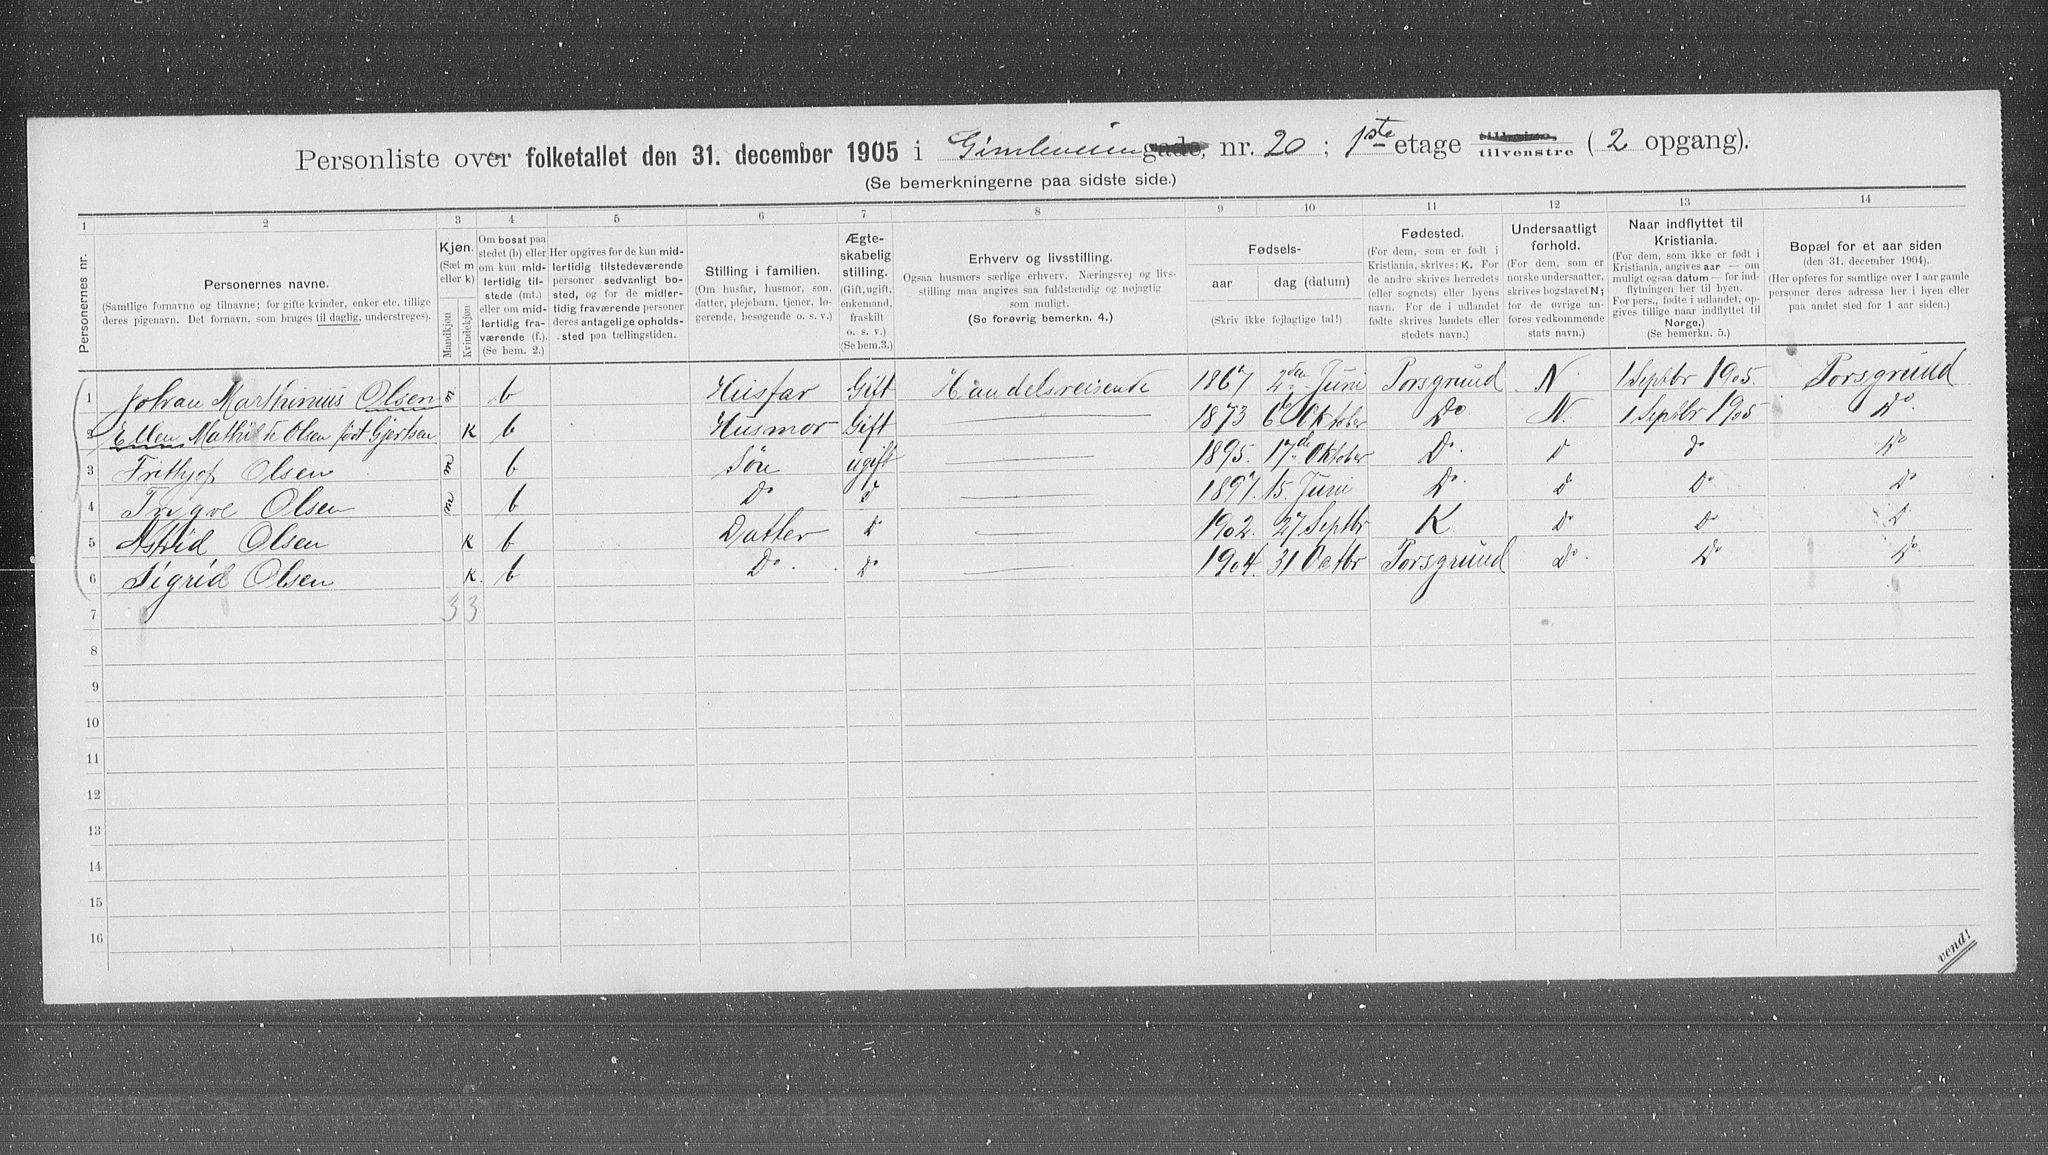 Personliste over folketallet den 31. december 1905 i Gimleveien gade, nr. 20 ; 1ste etage tilhøire tilvenstre ( 2 opgang).
(Se bemerkningerne paa sidste side.)
1 2 3 4 5 6 7 8 9 10 11 12 13 14
Personernes nr.
Personernes navne.
(Samtlige fornavne og tilnavne; for gifte kvinder, enker etc. tillige
deres pigenavn. Det fornavn, som bruges til daglig, understreges).
Kjøn.
(Sæt m
eller k)
Mandkjøn
Kvindekjøn
Om bosat paa
stedet (b) eller
om kun mid-
lertidig til-
stede (mt.)
eller om mid-
lertidig fra-
værende (f.).
(Se bem. 2.)
Her opgives for de kun mid-
lertidig tilstedeværende
personer sedvanligt bo-
sted, og for de midler-
tidig fraværende personer
deres antagelige opholds-
sted paa tællingstiden.
Stilling i familien.
(Om husfar, husmor, søn,
datter, plejebarn, tjener, lo-
gerende, besøgende o. s. v.)
Ægte-
skabelig
stilling.
(Gift, ugift,
enkemand,
fraskilt
o. s. v.)
(Se bem.3.)
Erhverv og livsstilling.
Ogsaa husmors særlige erhverv. Næringsvej og livs-
stilling maa angives saa fuldstændig og nøjagtig
som muligt.
(Se forøvrig bemerkn. 4.)
Fødsels-
aar dag (datum)
(Skriv ikke fejlagtige tal!)
Fødested.
(For dem, som er født i
Kristiania, skrives: K. For
de andre skrives herredets
(eller sognets) eller byens
navn. For de i udlandet
fødte skrives landets eller
stedets navn.)
Undersaatligt
forhold.
(For dem, som er
norske undersaatter,
skrives bogstavet N;
for de øvrige an-
føres vedkommende
stats navn.)
Naar indflyttet til
Kristiania.
(For dem, som ikke er født i
Kristiania, angives aar — om
muligt ogsaa datum — for ind-
flytningen her til byen.
For pers., fødte i udlandet, op-
gives tillige naar indflyttet til
Norge.)
(Se bemerkn. 5.)
Bopæl for et aar siden
(den 31. december 1904).
(Her opføres for samtlige over 1 aar gamle
personer deres adresse her i byen eller
paa andet sted for 1 aar siden.)
1 Johan Marthinius Olsen m b Husfar Gift Handelsreisende 1867 2den Juni Porsgrund N. 1 Septbr 1905. Porsgrund
2 Ellen Mathilde Olsen født Gjertsen K b Husmor Gift 1873 6te Oktober Do N. 1 Septbr 1905 Do.
3 Frithjof Olsen m b Søn ugift 1895. 17de Oktober Do. Do Do Do
4 Trygve Olsen m b Do Do 1897. 15. Juni Do. Do Do Do
5 Astrid Olsen K b Datter Do 1902. 27 Septbr K. Do Do Do
6 Sigrid Olsen K. b Do. Do 1904. 31 Octbr Porsgrund Do. Do Do.
7 3 3
8
9
10
11
12
13
14
15
16
vend!